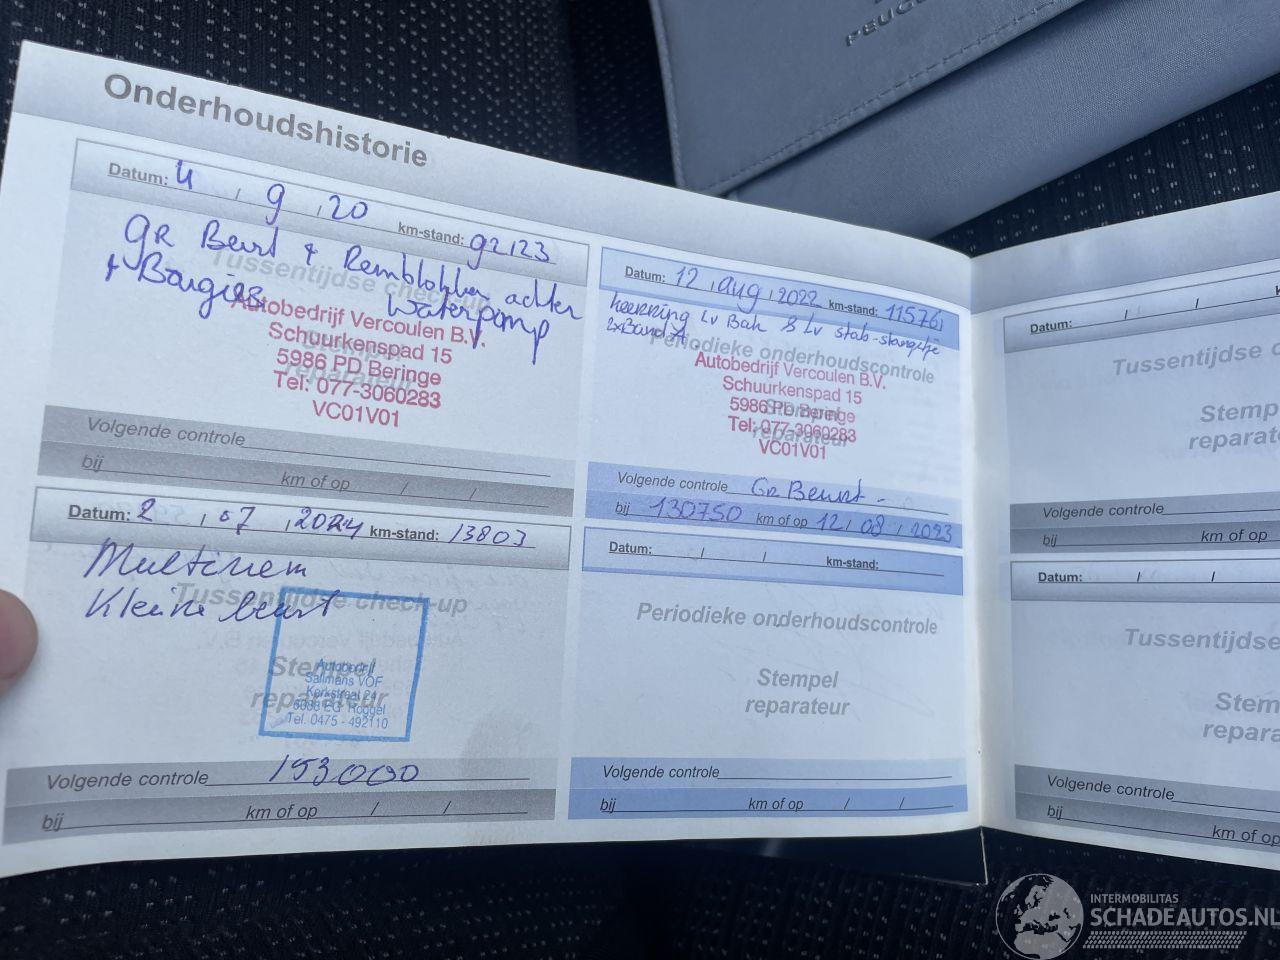 PEUG
Onderhoudshistorie
Datum: 4 / 9 / 20 km-stand: 92123
GR Beurt & Remblokken achter
+ Bougies Waterpomp
Tussentijdse check-up
Stempel
reparateur
Autobedrijf Vercoulen B.V.
Schuurkenspad 15
5986 PD Beringe
Tel: 077-3060283
VC01V01
Volgende controle
bij km of op / /
Datum: 12 / aug / 2022 km-stand: 115761
keerring Lv Bak & Lv stab-stangetje
2x Band A
Periodieke onderhoudscontrole
Stempel
reparateur
Autobedrijf Vercoulen B.V.
Schuurkenspad 15
5986 PD Beringe
Tel: 077-3060283
VC01V01
Volgende controle Gr Beurt -
bij 130750 km of op 12 / 08 / 2023
Datum: 2 / 07 / 2024 km-stand: 13803
Multiriem
Kleine beurt
Tussentijdse check-up
Stempel
reparateur
Autobedrijf
Sallmans VOF
Kerkstraat 24
6088 EG Roggel
Tel. 0475 - 492110
Volgende controle 153000
bij km of op / /
Datum: / / km-stand:
Periodieke onderhoudscontrole
Stempel
reparateur
Volgende controle
bij km of op / /
Datum: / /
Tussentijdse
Stemp
reparat
Volgende controle
bij km of op
Datum: / /
Tussentijdse
Stem
repara
Volgende controle
bij km of op
INTERMOBILITAS
SCHADEAUTOS.NL